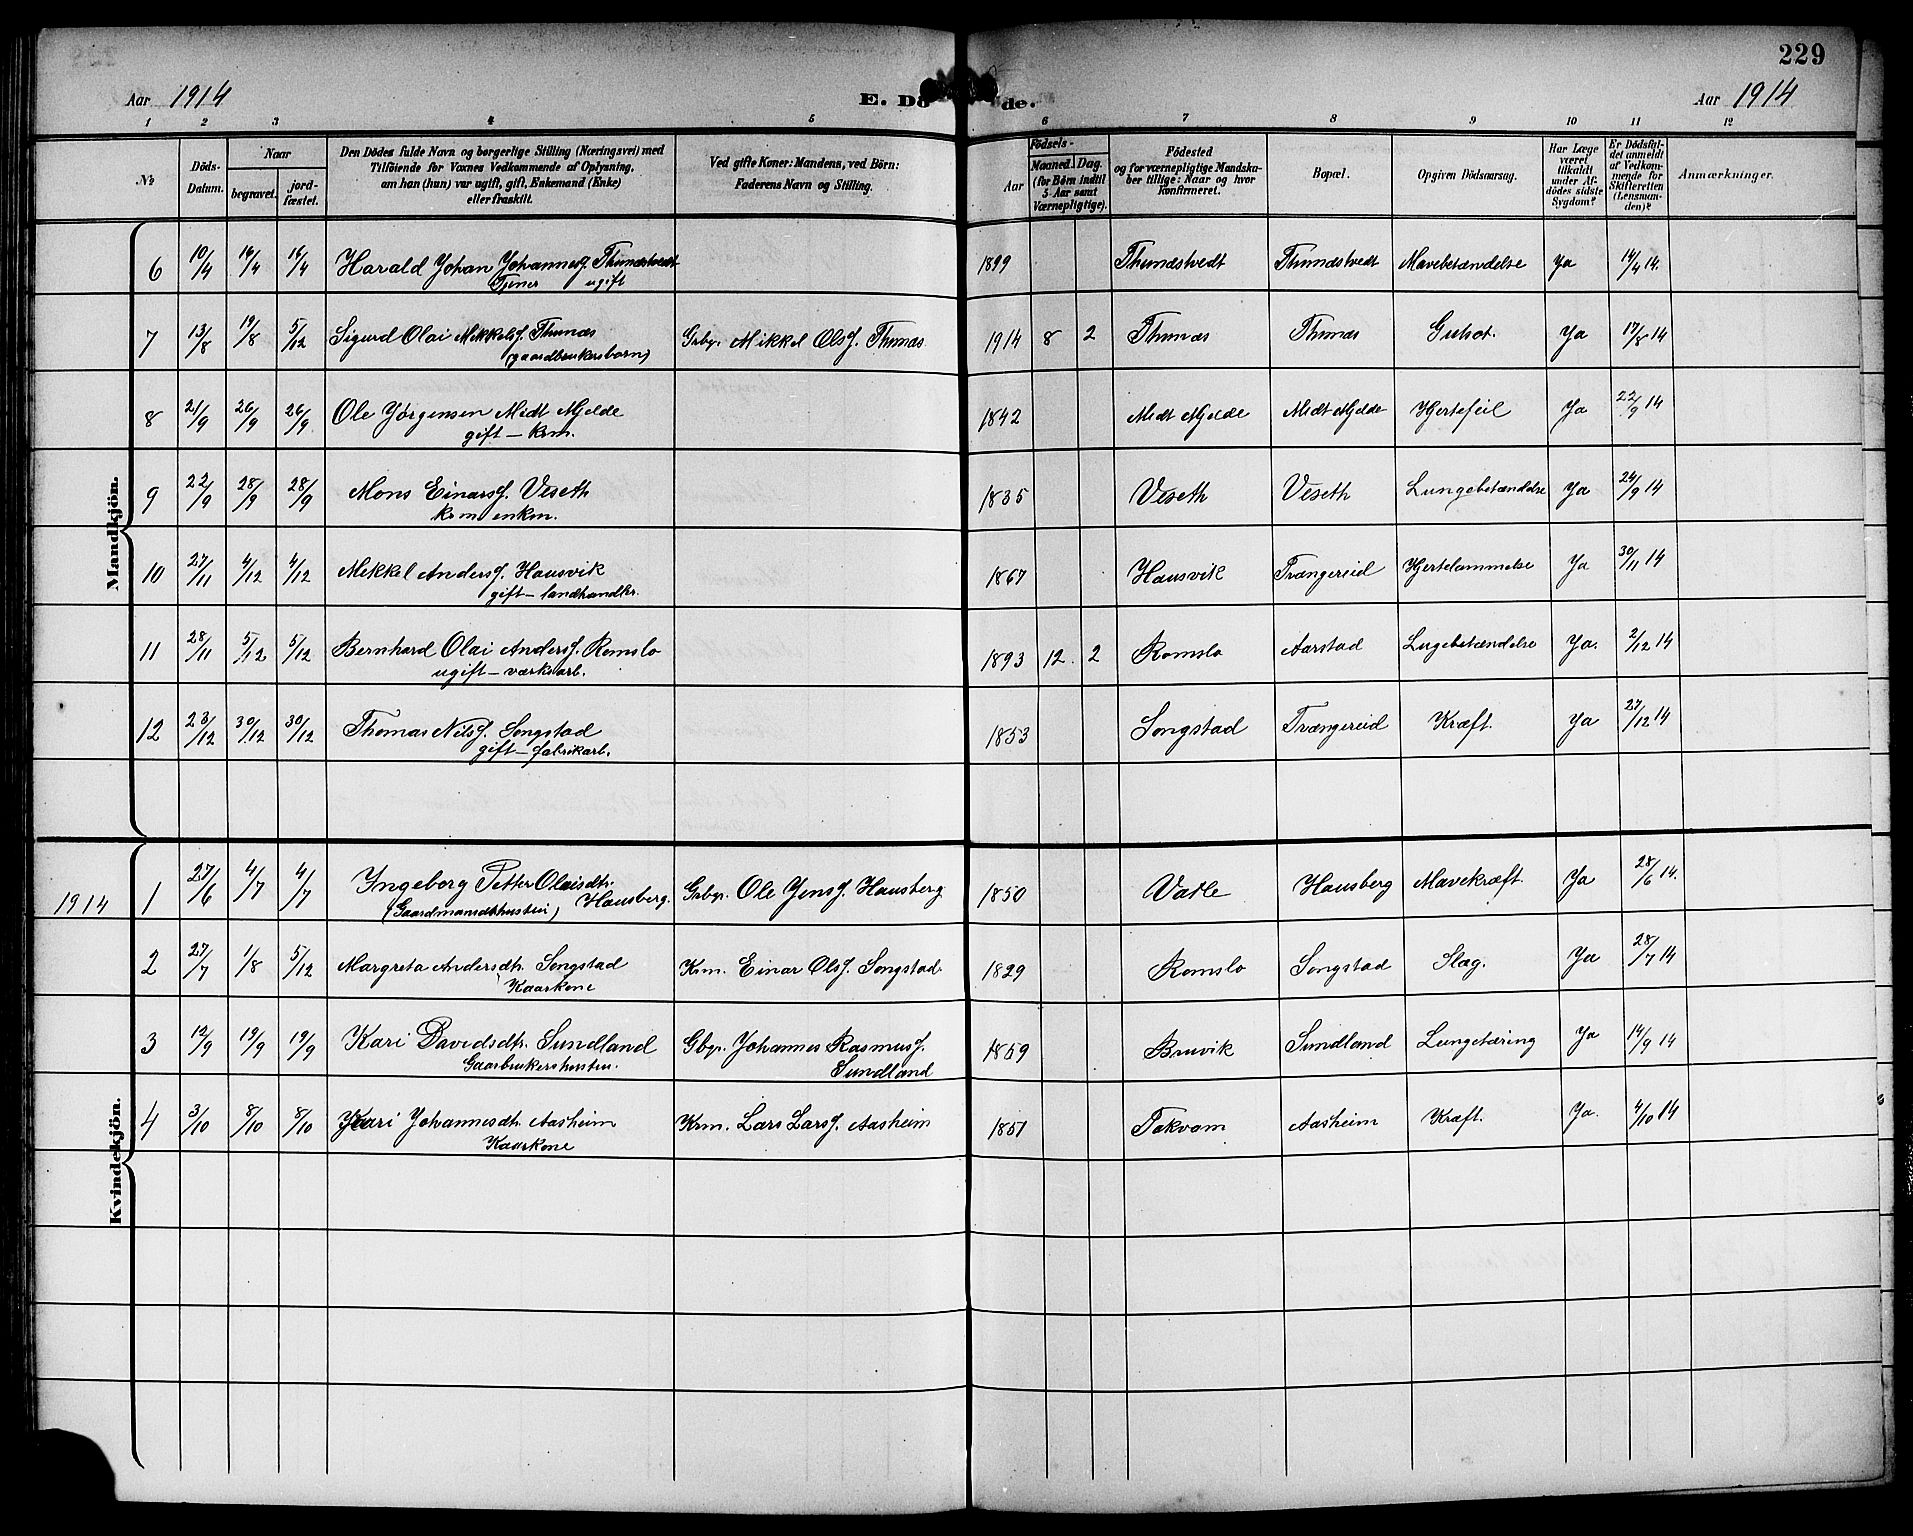 229
Aar 1914
E. Dö de.
Aar 1914
1 2 3 4 5 6 7 8 9 10 11 12
№
Döds-Datum.
Naar
begravet. jord-fæstet.
Den Dödes fulde Navn og borgerlige Stilling (Næringsvei) med
Tilföiende for Voxnes Vedkommende af Oplysning,
om han (hun) var ugift, gift, Enkemand (Enke)
eller fraskilt.
Ved gifte Koner: Mandens, ved Börn:
Faderens Navn og Stilling.
Födsels-
Aar Maaned. Dag.
(for Börn indtil
5 Aar samt
Værnepligtige).
Födested
og for værnepligtige Mandska-
ber tillige: Naar og hvor
konfirmeret.
Bopæl.
Opgiven Dödsaarsag.
Har Læge
været
tilkaldt
under Af-
dödes sidste
Sygdom?
Er Dödsfal-
det anmeldt
af Vedkom-
mende for
Skifteretten
(Lensman-
den)?
Anmærkninger.
Mandkjön.
6 10/4 16/4 16/4 Harald Johan Johannesf. Thunæstvedt 1899 Thunæstvedt Thunæstvedt Mavebetændelse Ja 14/4 14.
Tjener ugift
7 13/8 19/8 5/12 Sigurd Olai Mikkelsf. Thunæs Grbgr. Mikkel Olsf. Thunæs 1914 8 2 Thunæs Thunæs Ja 17/8 14
(gaardbrukersbarn)
8 21/9 26/9 26/9 Ole Jörgensen Midt Mjelde 1842 Midt Mjelde Midt Mjelde Hjertefeil Ja 22/9 14
gift - krm.
9 22/9 28/9 28/9 Mons Einarsf. Veseth 1835 Veseth Veseth Lungebetændelse Ja 24/9 14
krm enkm.
10 27/11 4/12 4/12 Mikkel Andersf. Hausvik 1867 Hausvik Trængereid Hjertelammelse Ja 30/11 14
gift - landhandlr.
11 28/11 5/12 5/12 Bernhard Olai Andersf. Romslo 1893 12. 2 Romslo Aarstad Lugebetændelse Ja. 2/12 14
ugift - værksarb.
12 23/12 30/12 30/12 Thomas Nilsf. Songstad 1853 Songstad Trængereid Kræft. Ja 27/12 14
gift - fabrikarb.
Kvindekjön.
1914 1 27/6 4/7 4/7 Ingeborg Petter Olaisdtr. Grbgr. Ole Jensf. Hausberg 1850 Vatle Hausberg Mavekræft. Ja 28/6 14.
(Gaardmandshustru) Hausberg.
2 27/7 1/8 5/12 Margreta Andersdtr. Songstad Krm. Einar Olsf. Songstad 1829 Romslo Songstad Slag. Ja 28/7 14
Kaarkone
3 12/9 19/9 19/9 Kari Davidsdtr. Sundland Gbgr. Johannes Rasmusf. 1859 Bruvik Sundland Lungetæring Ja 14/9 14
Gaarbrukershustru. Sundland
4 3/10 8/10 8/10 Kari Johannesdtr. Aasheim Krm. Lars Larsf. Aasheim 1851 Takvam Aasheim Kræft. Ja. 4/10 14
Kaarkone